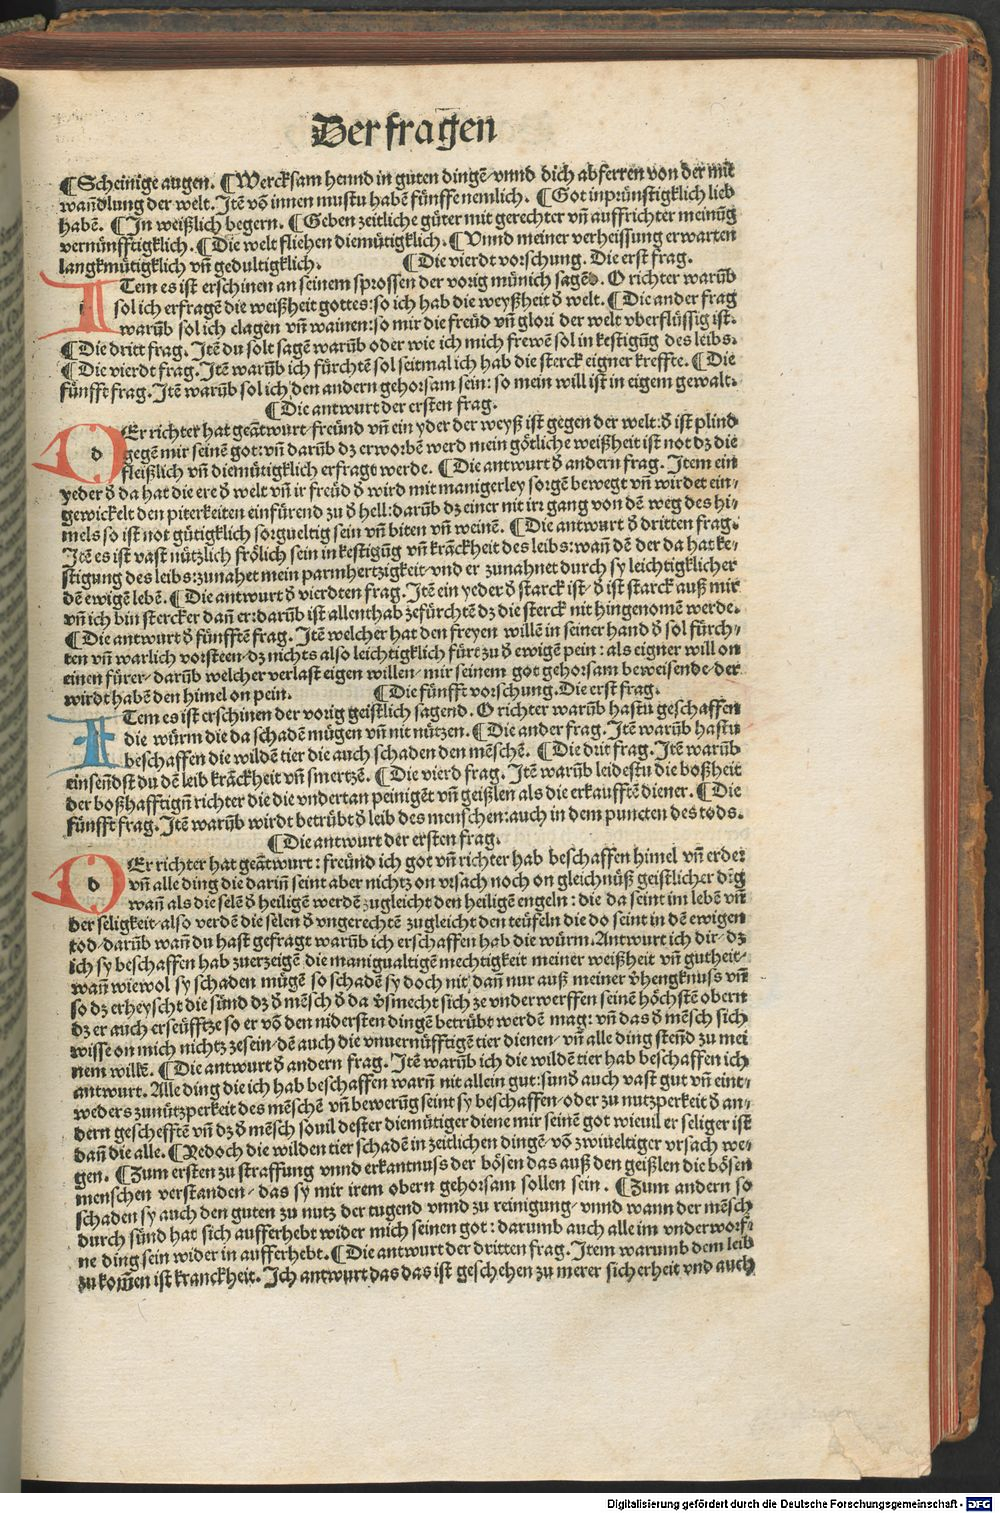 Der fragen
¶ Scheinige augen. ¶ Wercksam hennd in guten dingē/ vnnd dich abferren von der mit
wañdlung der welt. Itē võ innen mustu habē fünffe nemlich. ¶ Got inprünstigklich lieb
habē. ¶ In weißlich begern. ¶ Geben zeitliche güter mit gerechter vñ auffrichter meinūg
vernünfftigklich. ¶ Die welt fliehen diemütigklich. ¶ Vnnd meiner verheissung erwarten
langkmütigklich vñ gedultigklich. ¶ Die vierdt vorschung. Die erst frag.
ITem es ist erschinen an seinem sprossen der vorig münich sagēd. O richter warūb
sol ich erfragē die weißheit gottes: so ich hab die weyßheit d̕ welt. ¶ Die ander frag
warūb sol ich clagen vñ wainen: so mir die freüd vñ glori der welt vberflüssig ist.
¶ Die dritt frag. Itē du solt sagē warūb oder wie ich mich frewē sol in kestigūg des leibs.
¶ Die vierdt frag. Itē warūb ich fürchtē sol seitmal ich hab die sterck eigner kreffte. ¶ Die
fünfft frag. Itē warūb sol ich den andern gehorsam sein: so mein will ist in eigem gewalt.
¶ Die antwurt der ersten frag.
dEr richter hat geātwurt/ freünd vñ ein yder der weyß ist gegen der welt: d̕ ist plind
gegē mir seinē got: vñ darūb dz erworbē werd mein götliche weißheit ist not dz die
fleißlich vñ diemütigklich erfragt werde. ¶ Die antwurt d̕ andern frag. Item ein
yeder d̕ da hat die ere d̕ welt vñ ir freüd d̕ wird mit manigerley sorgē bewegt vñ wirdet ein/
gewickelt den piterkeiten einfürend zu d̕ hell: darūb dz einer nit irr gang von dē weg des hi/
mels so ist not gütigklich sorgueltig sein vñ biten vñ weinē. ¶ Die antwurt d̕ dritten frag.
Itē es ist vast nützlich frölich sein in kestigūg vñ krāckheit des leibs: wañ dē der da hat ke/
stigung des leibs: zunahet mein parmhertzigkeit/ vnd er zunahnet durch sy leichtigklicher
dē ewigē lebē. ¶ Die antwurt d̕ vierdten frag. Itē ein yeder d̕ starck ist/ d̕ ist starck auß mir
vñ ich bin stercker dañ er: darūb ist allenthab zefürchtē dz die sterck nit hingenomē werde.
¶ Die antwurt d̕ fünfftē frag. Itē welcher hat den freyen willē in seiner hand d̕ sol fürch/
ten vñ warlich vorsteen/ dz nichts also leichtigklich fürt zu d̕ ewigē pein: als eigner will on
einen fürer/ darūb welcher verlast eigen willen/ mir seinem got gehorsam beweisende/ der
wirdt habē den himel on pein. ¶ Die fünfft vorschung. Die erst frag.
ITem es ist erschinen der vorig geistlich sagend. O richter warūb hastu geschaffen
die würm die da schadē mügen vñ nit nützen. ¶ Die ander frag. Itē warūb hastu
beschaffen die wildē tier die auch schaden den mēschē. ¶ Die drit frag. Itē warūb
einsēdst du dē leib krāckheit vñ smertzē. ¶ Die vierd frag. Itē warūb leidestu die boßheit
der boßhafftigñ richter die die vndertan peinigēt vñ geißlen als die erkaufftē diener. ¶ Die
fünfft frag. Itē warūb wirdt betrübt d̕ leib des menschen: auch in dem puncten des tods.
¶ Die antwurt der ersten frag.
dEr richter hat geātwurt: freünd ich got vñ richter hab beschaffen himel vñ erde:
vñ alle ding die darīn seint aber nichtz on vrsach noch on gleichnüß geistlicher dīg
wañ als die selē d̕ heiligē werdē zugleicht den heiligē engeln: die da seint im lebē vñ
der seligkeit/ also verdē die selen d̕ vngerechtē zugleicht den teüfeln die do seint in dē ewigen
tod/ darūb wañ du hast gefragt warūb ich erschaffen hab die würm. Antwurt ich dir/ dz
ich sy beschaffen hab zuerzeigē die manigualtigē mechtigkeit meiner weißheit vñ gutheit/
wañ wiewol sy schaden mügē so schadē sy doch nit/ dañ nur auß meiner v̕hengknuss vñ
so dz erheyscht die sünd dz d̕ mēsch d̕ da v̕smecht sich ze vnderwerffen seinē höchstē obern
dz er auch erseüfftze so er võ den nidersten dingē betrübt werdē mag: vñ das d̕ mēsch sich
wisse on mich nichtz zesein/ dē auch die vnuernüfftigē tier dienen/ vñ alle ding stēd zu mei
nem willē. ¶ Die antwurt d̕ andern frag. Itē warūb ich die wildē tier hab beschaffen ich
antwurt. Alle ding die ich hab beschaffen warñ nit allein gut: sund̕ auch vast gut vñ eint/
weders zunützperkeit des mēschē vñ bewerūg seint sy beschaffen/ oder zu nutzperkeit d̕ an/
dern gescheffte̅ vñ dz d̕ mēsch souil dester diemütiger diene mir seinē got wieuil er seliger ist
dañ die alle. ¶ Yedoch die wilden tier schadē in zeitlichen dingē/ võ zwiueltiger vrsach we/
gen. ¶ Zum ersten zu straffung vnnd erkantnuss der bösen das auß den geißlen die bösen
menschen verstanden/ das sy mir irem obern gehorsam sollen sein. ¶ Zum andern so
schaden sy auch den guten zu nutz der tugend vnnd zu reinigung/ vnnd wann der mēsch
durch sünd hat sich aufferhebt wider mich seinen got: darumb auch alle im vnderworf/
ne ding sein wider in aufferhebt. ¶ Die antwurt der dritten frag. Item warumb dem leib
zu komēn ist kranckheit. Ich antwurt das das ist geschehen zu merer sicherheit vnd auch
Digitalisierung gefördert durch die Deutsche Forschungsgemeinschaft - DFG